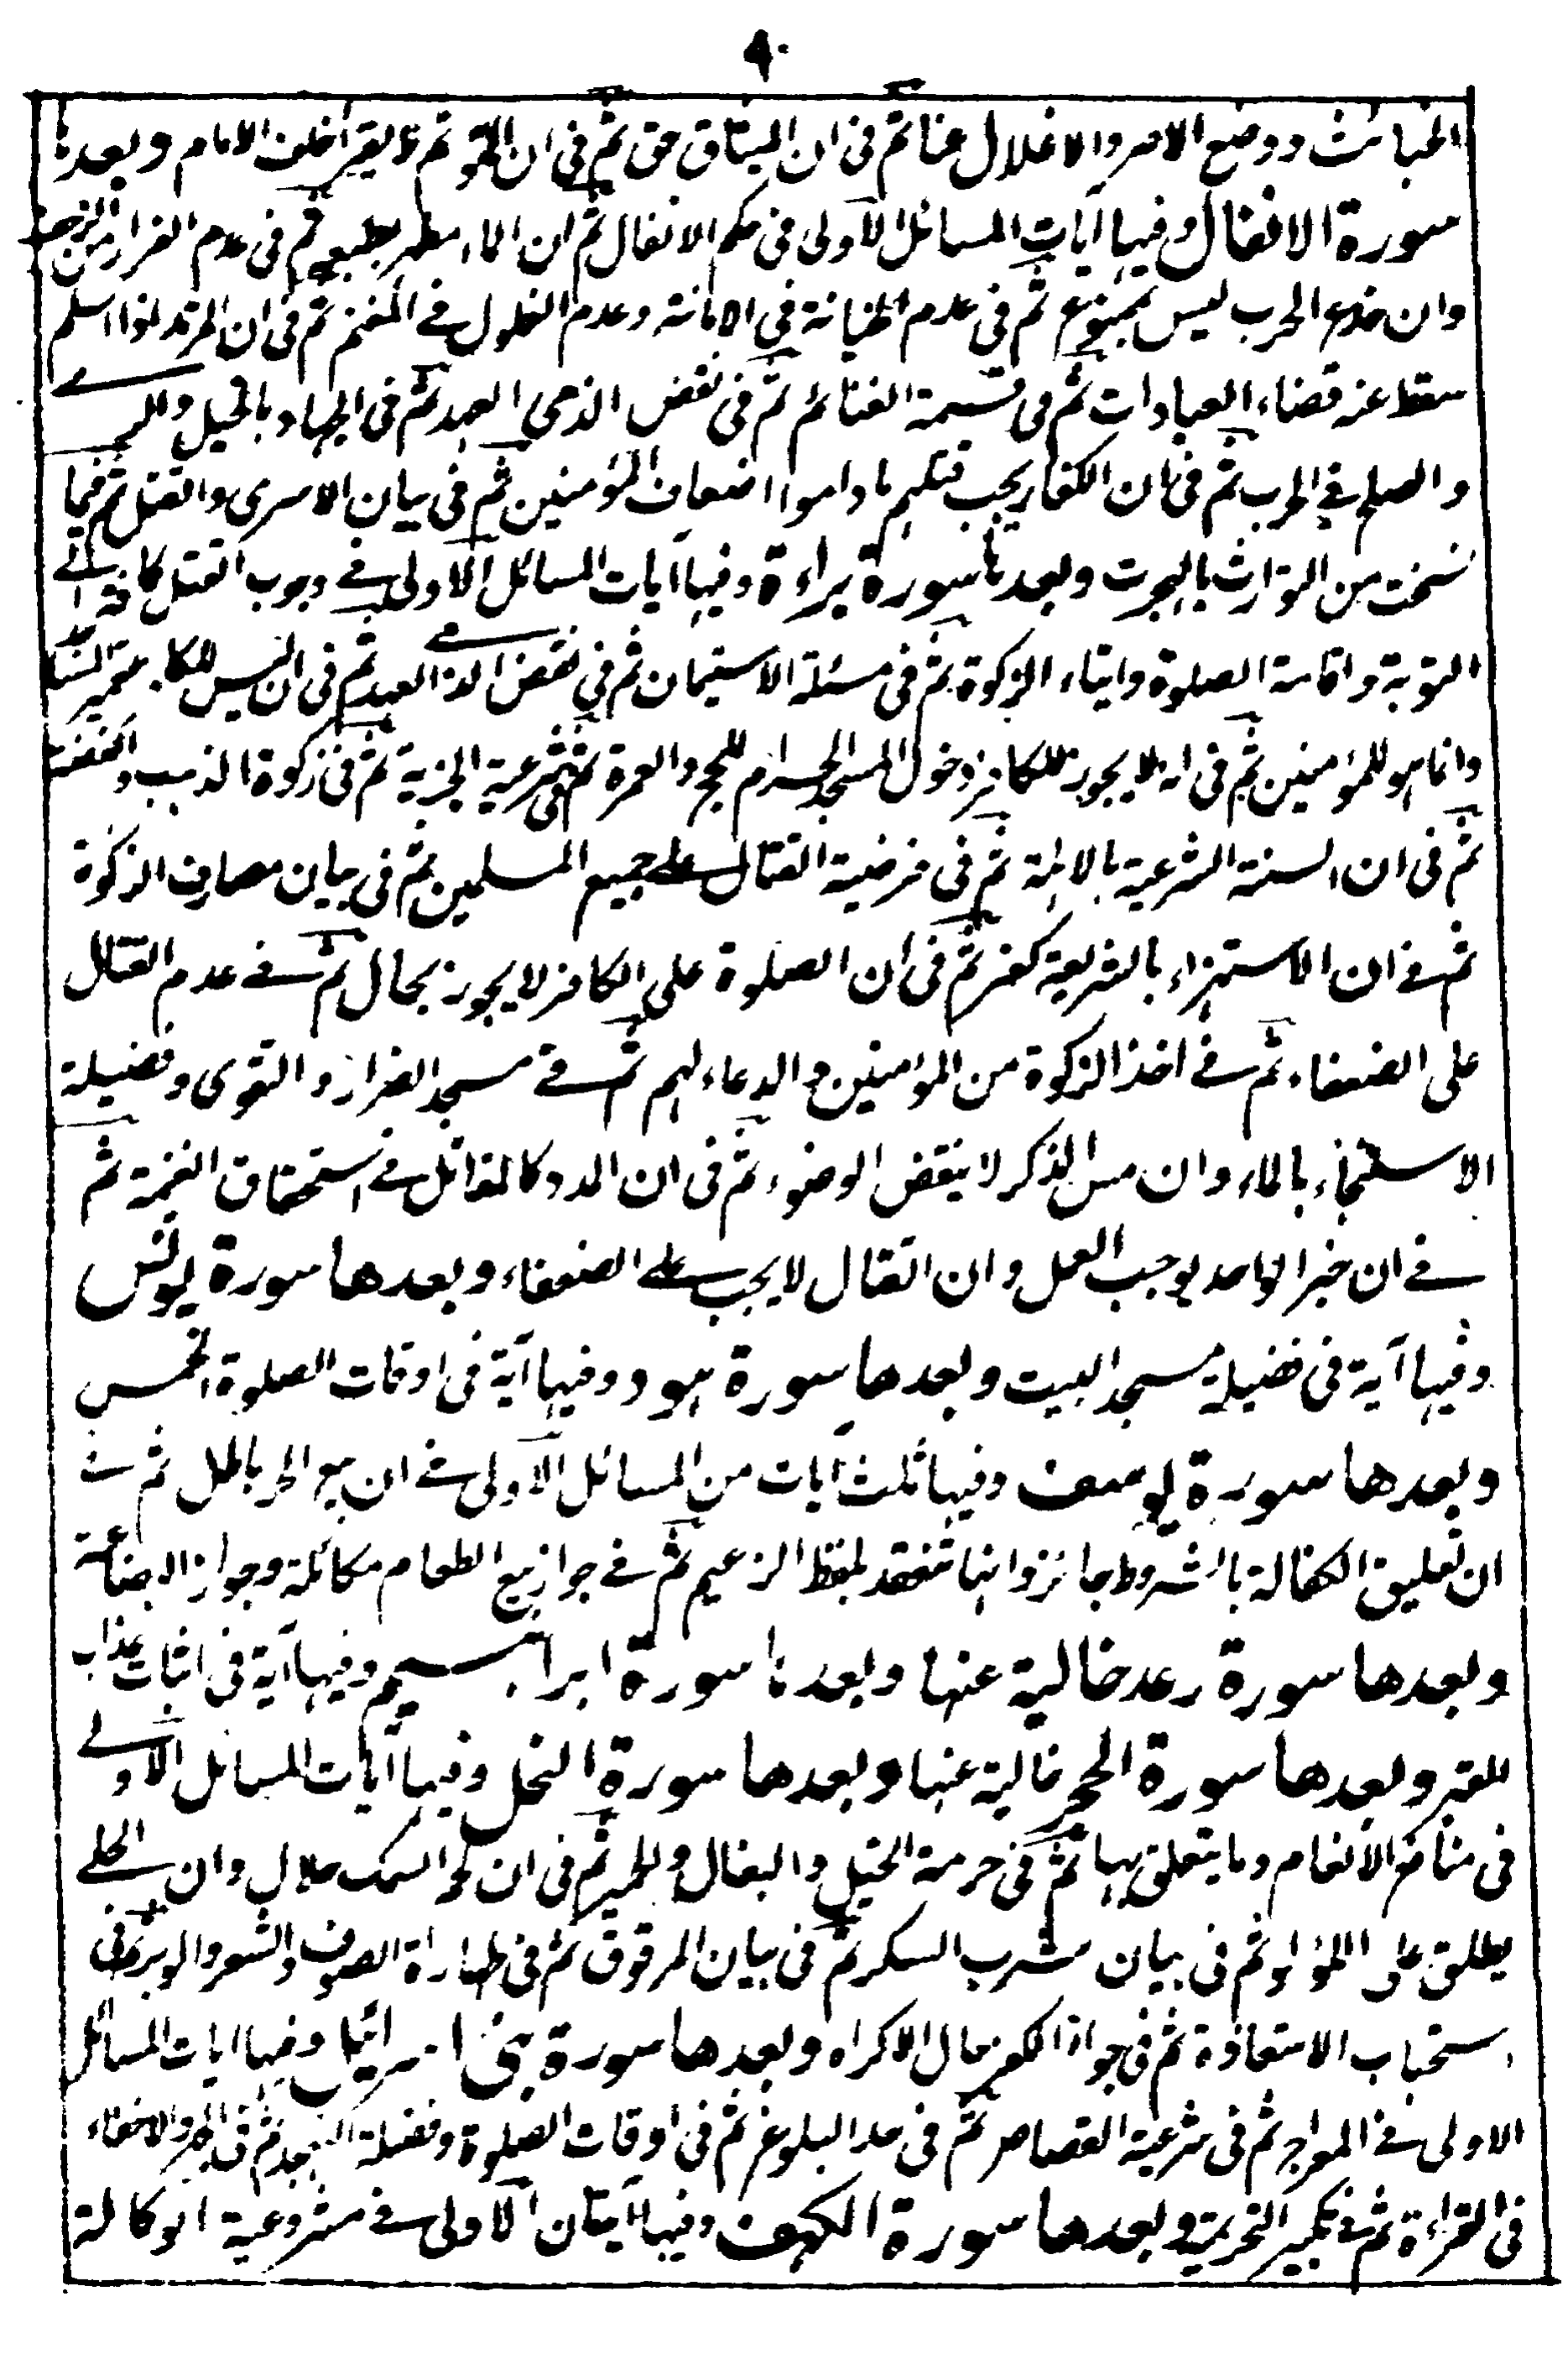 ٩٠
الخبائث ووضع الاصر والاغلال عنا ثم فى ان الميثاق حق ثم فى ان المؤتم لا يقرأ خلف الامام وبعدها
سورة الانفال وفيها آيات المسائل الاولى فى حكم الانفال ثم ان الماء مطهر بطبعه ثم فى عدم الفرار من الزحف
وان خداع الحرب ليس بممنوع ثم فى عدم الخيانة فى الامانة وعدم الغلول فى المغنم ثم فى ان المرتد اذا اسلم
سقط عنه قضاء العبادات ثم فى قسمة الغنائم ثم فى نقض الذمى العهد ثم فى الجهاد بالخيل والرمى
والصلح فى الحرب ثم فى ان الكفار يجب قتلهم ما داموا اضعاف المؤمنين ثم فى بيان الاسرى والقتل ثم فيما
نسخت من التوارث بالهجرت وبعدها سورة براءة وفيها آيات المسائل الاولى فى وجوب القتل كافة الى
التوبة واقامة الصلوة وايتاء الزكوة ثم فى مسئلة الاستيمان ثم فى نقض الذمى العهد ثم فى ان ليس للكافر تعمير المساجد
وانما هو للمؤمنين ثم فى انه لا يجوز للكافر دخول المسجد الحرام للحج والعمرة ثم فى شرعية الجزية ثم فى زكوة الذهب والفضة
ثم فى ان السنة الشرعية بالاهلة ثم فى فرضية القتال على جميع المسلمين ثم فى بيان مصارف الزكوة
ثم فى ان الاستهزاء بالشريعة كفر ثم فى ان الصلوة على الكافر لا يجوز بحال ثم فى عدم القتال
على الضعفاء ثم فى اخذ الزكوة من المؤمنين والدعاء لهم ثم فى مسجد الضرار والتقوى وفضيلة
الاستنجاء بالماء وان مس الذكر لا ينقض الوضوء ثم فى ان المدد كالمقاتل فى استحقاق الغنيمة ثم
فى ان خبر الواحد يوجب العمل وان القتال لا يجب على الضعفاء وبعدها سورة يونس
وفيها آية فى فضيلة مسجد البيت وبعدها سورة هود وفيها آية فى اوقات الصلوة الخمس
وبعدها سورة يوسف وفيها ثلث آيات من المسائل الاولى فى ان بيع الحر باطل ثم فى
ان تعليق الكفالة بالشروط جائز وانها تنعقد بلفظ الزعيم ثم فى جواز بيع الطعام مكائلة وجواز البضاعة
وبعدها سورة رعد خالية عنها وبعدها سورة ابراهيم وفيها آية فى اثبات عذاب
القبر وبعدها سورة الحجر خالية عنها وبعدها سورة النحل وفيها آيات المسائل الاولى
فى منافع الانعام وما يتعلق بها ثم فى حرمة الخيل والبغال والحمير ثم فى ان لحم السمك حلال وان الحلى
يطلق على اللؤلؤ ثم فى بيان شرب السكر ثم فى بيان المرقوق ثم فى طهارة الصوف والشعر والوبر ثم فى
استحباب الاستعاذة ثم فى جواز الكفر حال الاكراه وبعدها سورة بنى اسرائيل وفيها ايات المسائل
الاولى فى المعراج ثم فى شرعية القصاص ثم فى حد البلوغ ثم فى اوقات الصلوة وفضيلة التهجد ثم فى الجهر والاخفاء
فى القراءة ثم فى تكبير التحريمة وبعدها سورة الكهف وفيها آيتان الاولى فى مشروعية الوكالة